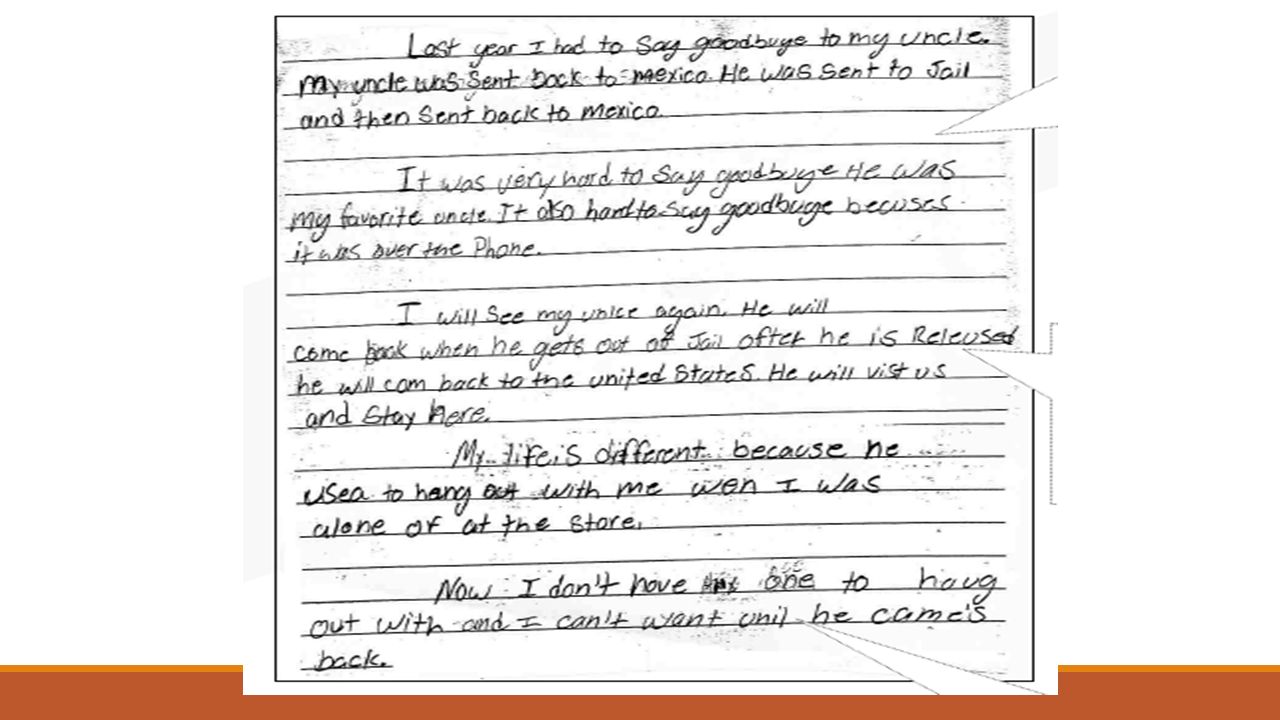 Last year I had to say goodbuye to my uncle.
My uncle was sent back to mexico. He was sent to Jail
and then sent back to mexico.
It was very hard to say goodbuye He was
my favorite uncle. It also hard to say goodbuge becuses
it was over the Phone.
I will see my unlce again. He will
come back when he gets out of Jail after he is Releused
he will com back to the united States. He will vist us
and stay here.
My life is different because he
used to hang out with me wen I was
alone or at the store.
Now I don't have one to haug
out with and I can't want unil he came's
back.